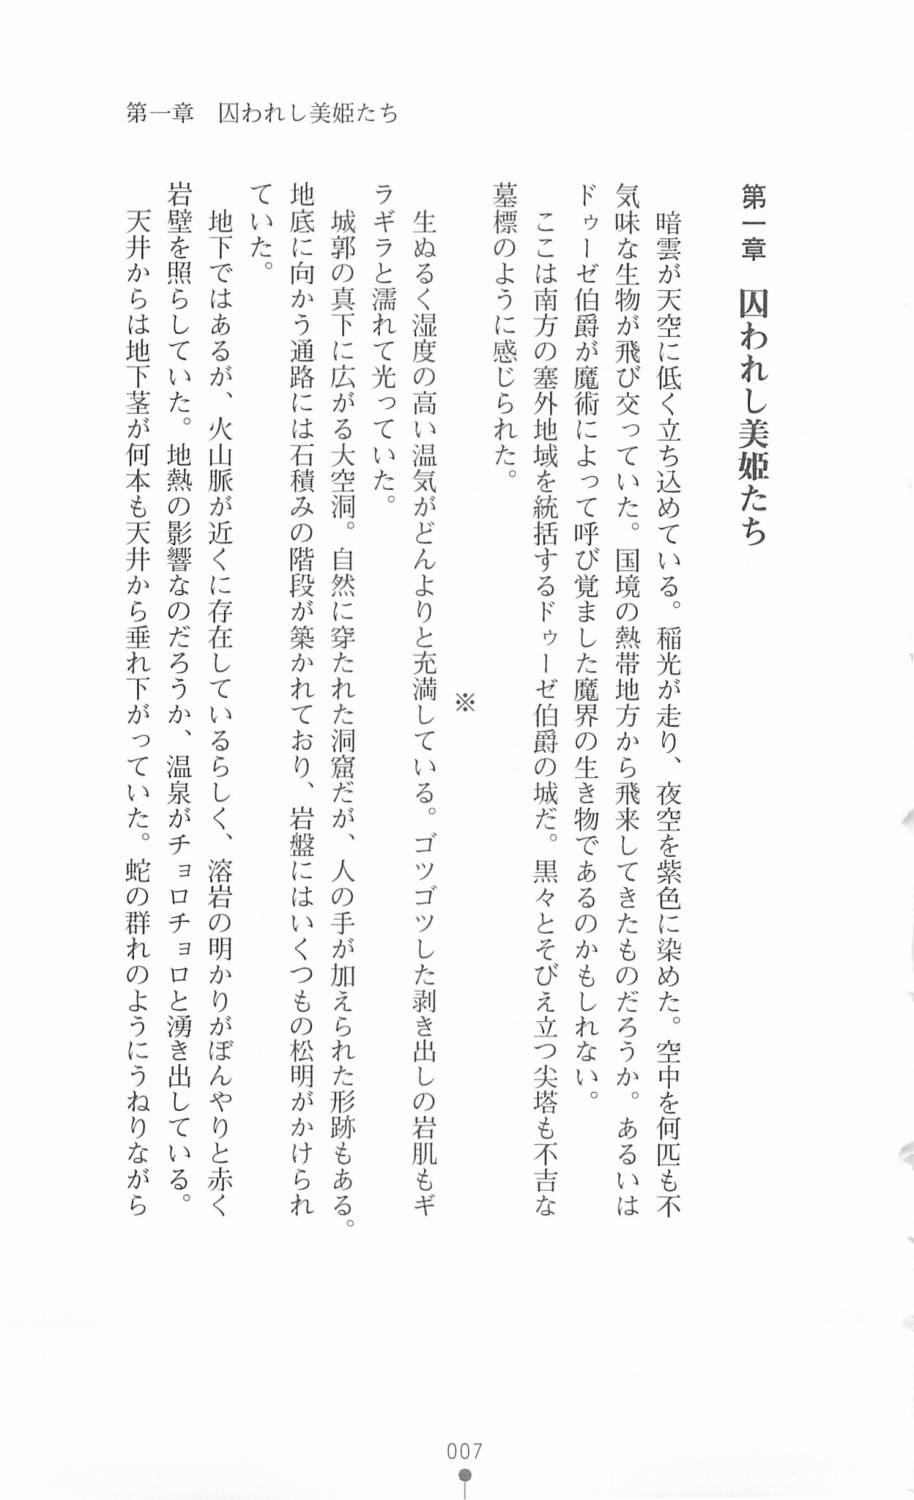 第一章　囚われし美姫たち
第一章　囚われし美姫たち
　暗雲が天空に低く立ち込めている。稲光が走り、夜空を紫色に染めた。空中を何匹も不
気味な生物が飛び交っていた。国境の熱帯地方から飛来してきたものだろうか。あるいは
ドゥーゼ伯爵が魔術によって呼び覚ました魔界の生き物であるのかもしれない。
　ここは南方の塞外地域を統括するドゥーゼ伯爵の城だ。黒々とそびえ立つ尖塔も不吉な
墓標のように感じられた。
※
　生ぬるく湿度の高い温気がどんよりと充満している。ゴツゴツした剥き出しの岩肌もギ
ラギラと濡れて光っていた。
　城郭の真下に広がる大空洞。自然に穿たれた洞窟だが、人の手が加えられた形跡もある。
地底に向かう通路には石積みの階段が築かれており、岩盤にはいくつもの松明がかけられ
ていた。
　地下ではあるが、火山脈が近くに存在しているらしく、溶岩の明かりがぼんやりと赤く
岩壁を照らしていた。地熱の影響なのだろうか、温泉がチョロチョロと湧き出している。
　天井からは地下茎が何本も天井から垂れ下がっていた。蛇の群れのようにうねりながら
007